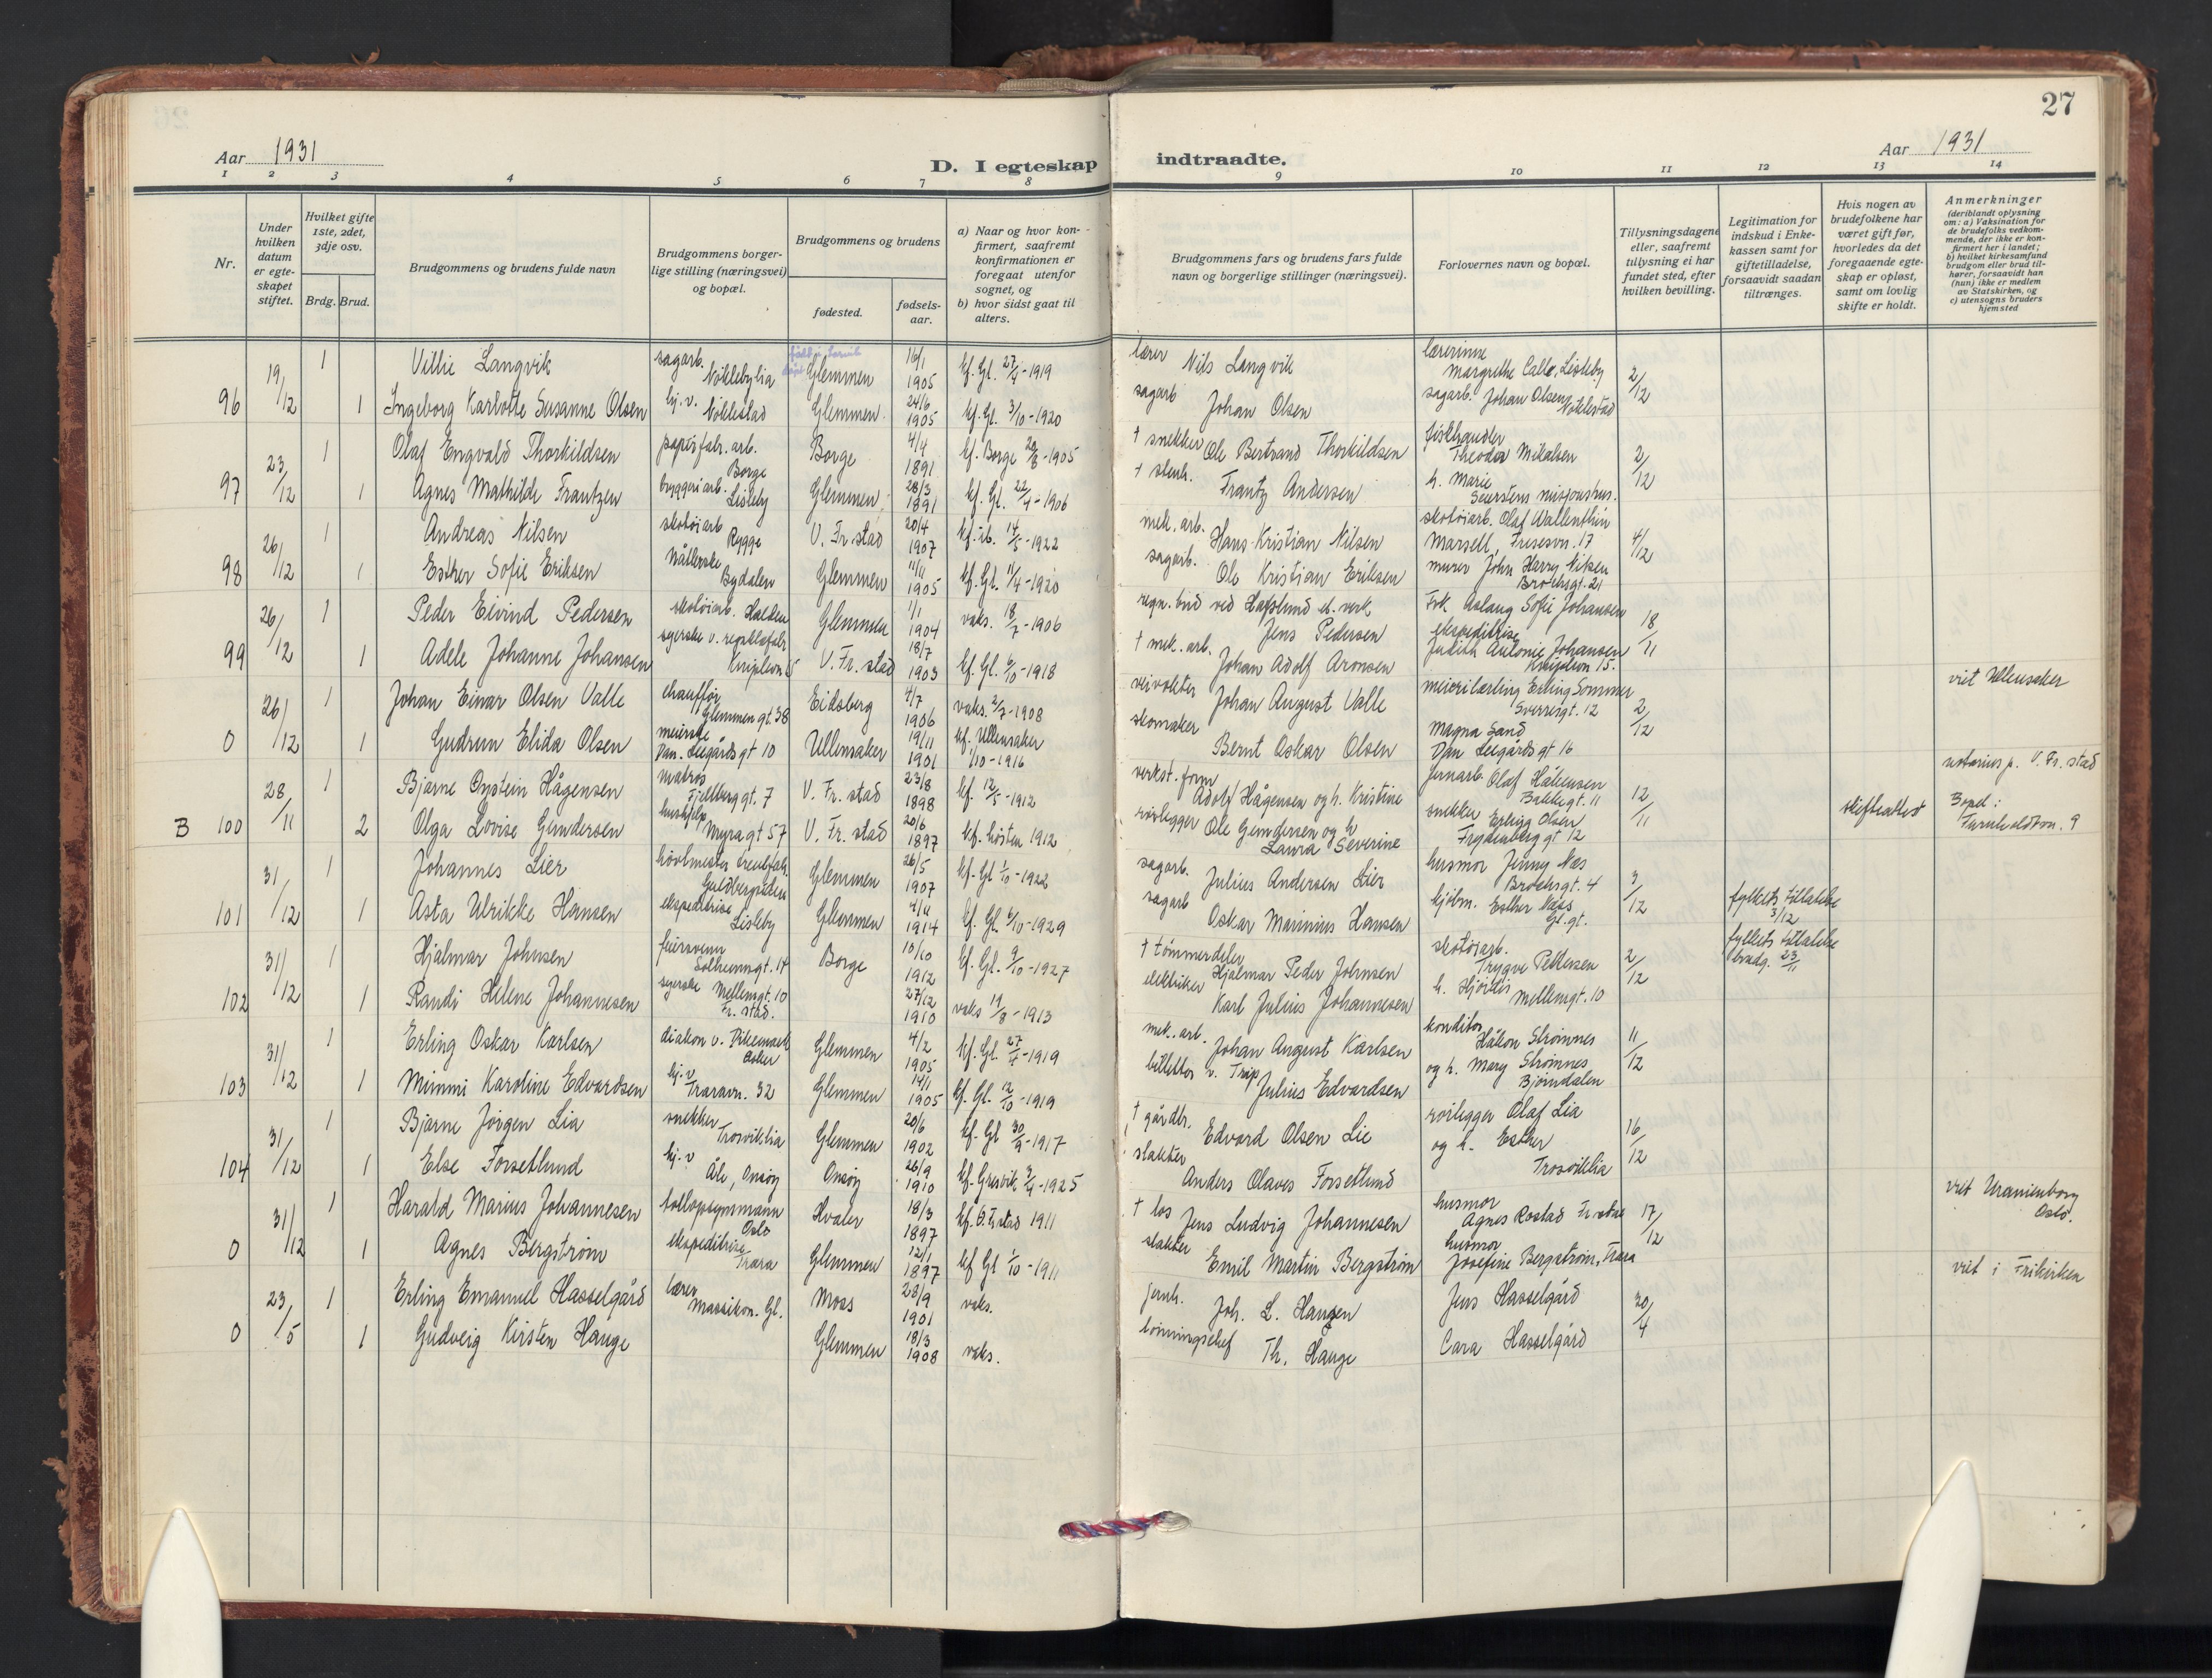 27
Aar 1931
D. I egteskap indtraadte.
Aar 1931
1 2 3 4 5 6 7 8 9 10 11 12 13 14
Nr.
Under hvilken datum er egteskapet stiftet.
Hvilket gifte 1ste, 2det, 3dje osv.
Brdg. Brud.
Brudgommens og brudens fulde navn
Brudgommens borgerlige stilling (næringsvei) og bopæl.
Brudgommens og brudens
fødested.
fødselsaar.
a) Naar og hvor konfirmert, saafremt konfirmationen er foregaat utenfor sognet, og
b) hvor sidst gaat til alters.
Brudgommens fars og brudens fars fulde navn og borgerlige stillinger (næringsvei).
Forlovernes navn og bopæl.
Tillysningsdagene eller, saafremt tillysning ei har fundet sted, efter hvilken bevilling.
Legitimation for indskud i Enkekassen samt for giftetilladelse, forsaavidt saadan tiltrænges.
Hvis nogen av brudefolkene har været gift før, hvorledes da det foregaaende egteskap er opløst, samt om lovlig skifte er holdt.
Anmerkninger
(deriblandt oplysning om: a) Vaksination for de brudefolks vedkommende, der ikke er konfirmert her i landet; b) hvilket kirkesamfund brudgom eller brud tilhører, forsaavidt han (hun) ikke er medlem av Statskirken, og c) utensogns bruders hjemsted
19/12 1 Villie Langvik sagarb. Nøklebylia Glemmen 16/1 1905 kf. Gl. 27/4-1919 lærer Nils Langvik lærerinne Margrethe Calle, Lisleby 2/12
96 1 Ingeborg Karlotte Susanne Olsen hj. v. Nøklestad Glemmen 24/6 1905 kf. Gl. 3/10-1920 sagarb Johan Olsen sagarb. Johan Olsen Nøklestad
23/12 1 Olaf Engvald Thorkildsen papirfabr. arb. Borge Borge 4/4 1891 kf. Borge 20/8-1905 † snekker Ole Bertrand Thorkildsen fiskhandler Theodor Mikalsen 2/12
97 1 Agnes Mathilde Frantzen bryggeriarb. Lisleby Glemmen 28/3 1891 kf. Gl. 22/4-1906 † stenh. Frantz Andersen h. Marie Seierstens misjonshus.
26/12 1 Andreas Nilsen skotøiarb Rygge V. Fr.stad 20/4 1907 kf. ib. 14/5-1922 mek. arb. Hans Kristian Nilsen skotøiarb. Olaf Wallenthin Marsell, Fresesvn. 17 4/12
98 1 Esther Sofie Eriksen Nåtlerske Bydalen Glemmen 11/11 1905 kf. Gl. 11/4-1920 sagarb. Ole Kristian Eriksen murer John Harry Nilsen Brochsgt. 21
26/12 1 Peder Eivind Pedersen skotøiarb. Halden Glemmen 1/1 1904 vaks. 18/7-1906 regn. bud ved Hafslund el. verk Jens Pedersen Frk. Aslaug Sofie Johansen ekspeditrise 18/11
99 1 Adele Johanne Johansen syerske v. Kniplevn 15 V. Fr. stad 18/7 1903 kf. Gl. 6/10-1918 † mek. arb. Johan Adolf Aronsen Judith Antonie Johansen Kniplevn 15.
26/12 1 Johan Einar Olsen Valle chauffør Glemmengt. 38 Eidsberg 4/7 1906 vaks. 2/7-1908 veivokter Johan August Valle meierilærling Erling Sommer Sverresgt. 12 2/12 viet Ullensaker
0 1 Gudrun Elida Olsen meierske Dan. Leegårds gt 10 Ullensaker 19/11 1901 kf. Ullensaker 1/10-1916 skomaker Bernt Oskar Olsen Magna Sand Dan Leegårds gt 16
28/11 1 Bjarne Øystein Hågensen matros Fjellberg gt. 7 V. Fr. stad 23/8 1898 kf. 12/5-1912 verkst. form Adolf Hågensen og h. Kristine jernarb. Olaf Håkensen Bakkegt. 11 12/11 notarius p. V. Fr. stad
B 100 2 Olga Lovise Gundersen hushjelp Myra gt 57 V. Fr. stad 20/6 1897 kf. høsten 1912 rørlegger Ole Gundersen og h Laura Severine snekker Erling Olsen Frydenberg gt 12 Bopel: 9
31/12 1 Johannes Lier Glemmen 26/5 1907 kf. Gl 1/10-1922 sagarb. Julius Andersen Lier husmor Jenny Næs Brochsgt. 4 3/12
101 1 Asta Ulrikke Hansen ekspeditrise Lisleby Glemmen 4/11 1914 kf. Gl 6/10-1929 sagarb Oskar Marinius Hansen kjøbm. Esther Næss Gl. gt. fylkets tillatelse 3/12
31/12 1 Hjalmar Johnsen feiersvenn Solhemmgt. 14 Borge 10/10 1912 kf. Gl. 9/10-1927 † tømmerdeler Hjalmar Peder Johnsen skotøiarb. Trygve Pettersen 2/12 fylkets tillatelse brudg. 23/11
102 1 Randi Helene Johannesen syerske Mellemgt. 10 Fr. stad. 27/12 1910 vaks 19/8-1913 elektriker Karl Julius Johannesen h. Hjørdis Mellemgt. 10
31/12 1 Erling Oskar Karlsen diakon v. Dikemark Asker Glemmen 4/2 1905 kf. Gl. 27/4-1919 mek. arb. Johan August Karlsen konditor Håkon Strømnes 11/12
103 1 Mimmi Karoline Edvardsen hj. v Traravn. 32 Glemmen 14/1 1905 kf. Gl. 12/10-1919 billettør v. Trip Julius Edvardsen og h. Mary Strømnes Bjørndalen
31/12 1 Bjarne Jørgen Lia snekker Trosviklia Glemmen 20/6 1902 kf. Gl 30/9-1917 † gårdbr. Edvard Olsen Lie rørlegger Olaf Lia 16/12
104 1 Else Forsetlund hj. v Åle, Onsøy Onsøy 26/9 1910 kf. Gresvik 1925 slakter Anders Olaves Forsetlund og h. Esther Trosviklia
31/12 1 Harald Marius Johannesen tollopsynsmann Oslo Hvaler 18/3 1897 kf. Ø. Fr.stad 1911 † los Jens Ludvig Johannesen husmor Agnes Rostad Fr.stad 17/12 viet Uranienborg Oslo.
0 1 Agnes Bergstrøm ekspeditrise Trara Glemmen 12/1 1897 kf Gl 1/10-1911 slakter Emil Martin Bergstrøm husmor Josefine Bergstrøm, Trara
23/5 1 Erling Emanuel Hasselgård lærer Glemmen Moss 28/9 1901 vaks. jernh. Joh. L. Hansen Jens Hasselgård 30/4 viet i Frikirken
0 1 Gudveig Kirsten Hauge Glemmen 18/3 1908 vaks. lønningschef Th. Hauge Cara Hasselgård